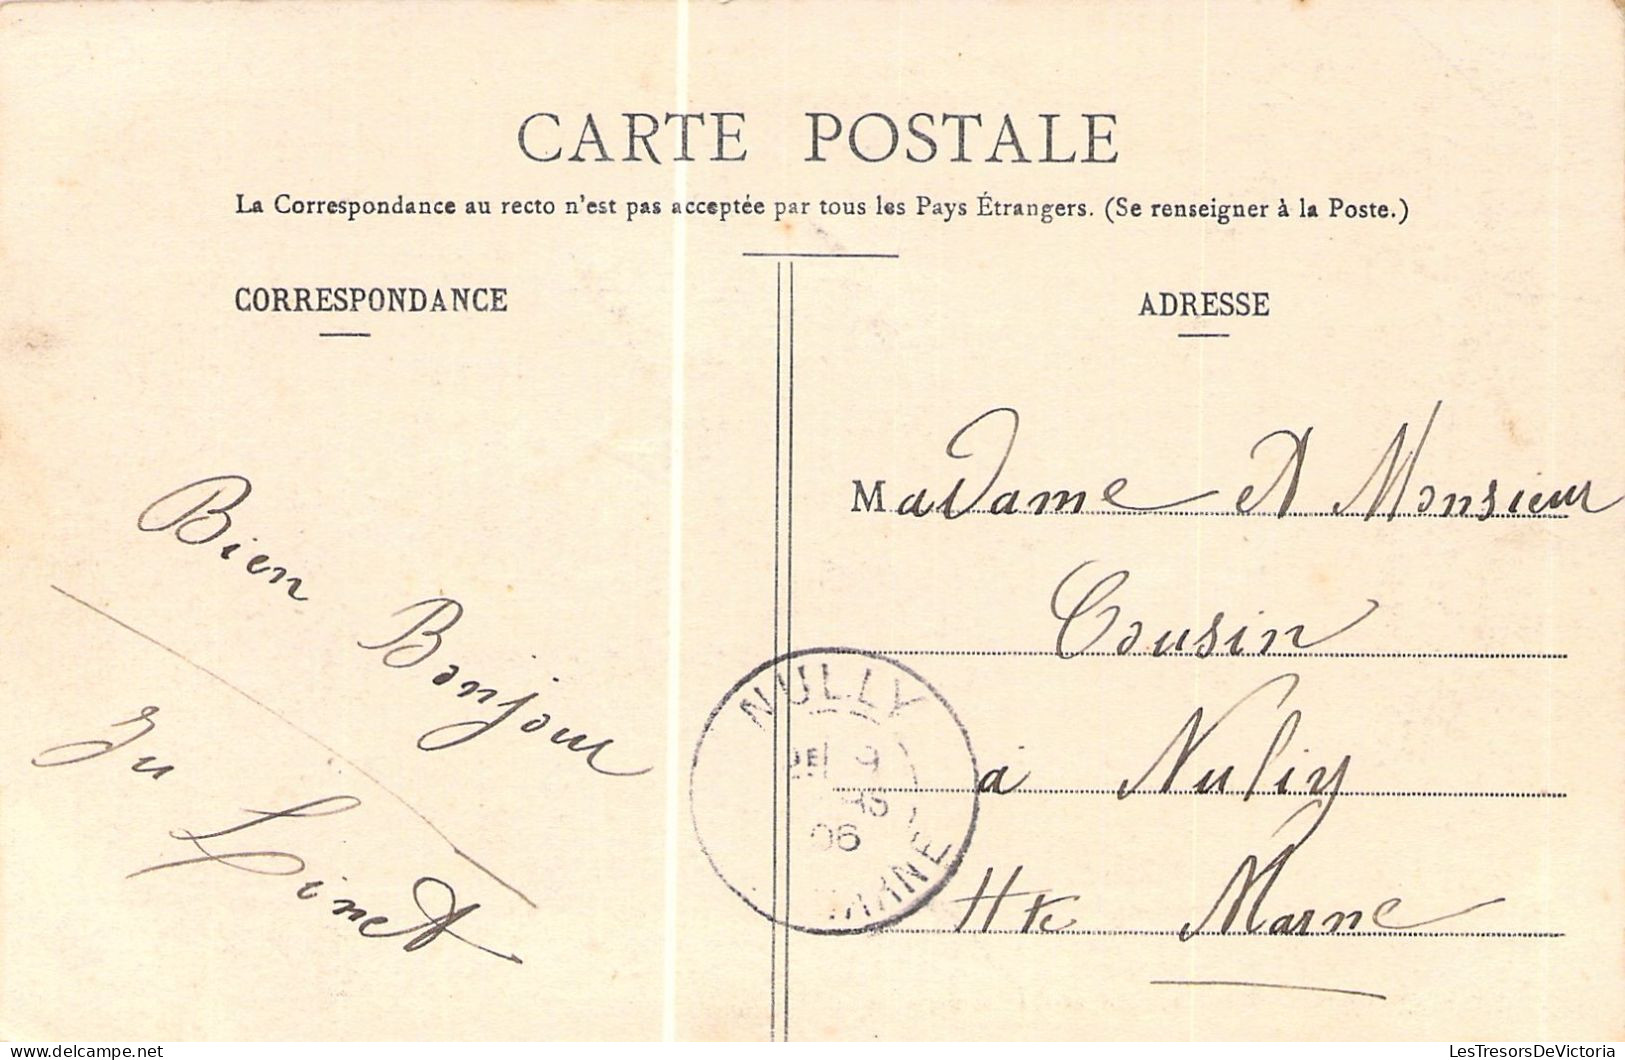 CARTE POSTALE
La Correspondance au recto n'est pas acceptée par tous les Pays Étrangers. (Se renseigner à la Poste.)
CORRESPONDANCE
ADRESSE
Bien Bonjour
Linet
Madame et Monsieur
Cousin
à Nully
Hte Marne
NULLY
9
06
MARNE
LesTresorsDeVictoria